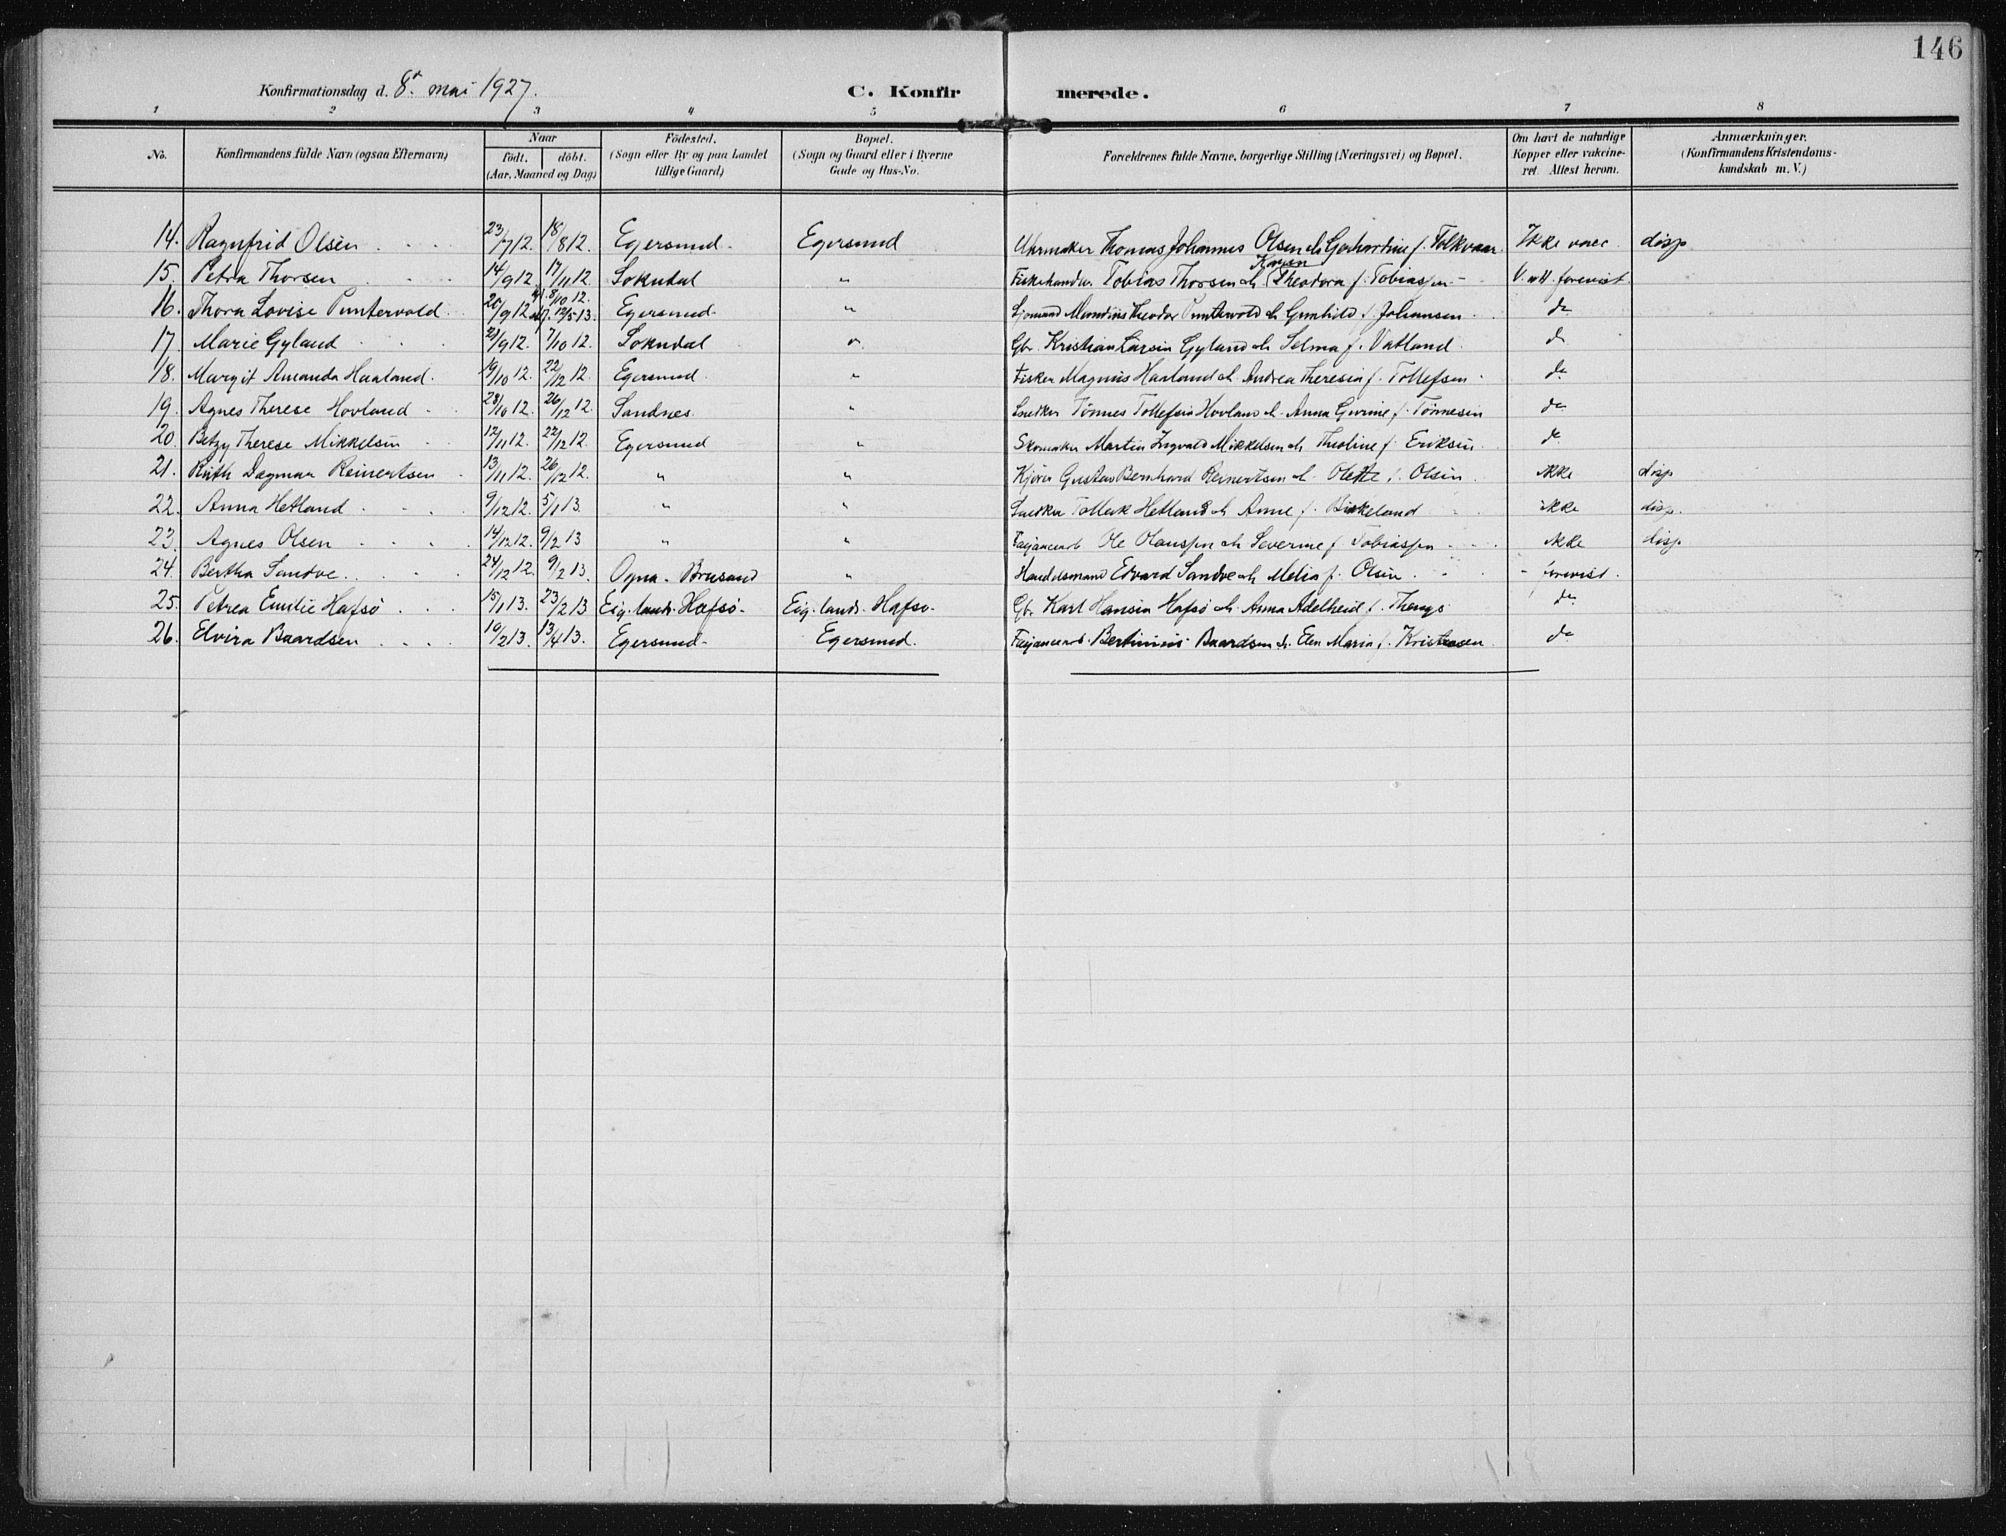 146
Konfirmationsdag d. 8de mai 1927.
C. Konfirmerede.
1 2 3 4 5 6 7 8
No. Konfirmandens fulde Navn (ogsaa Efternavn) Naar födt. döbt. (Aar, Maaned og Dag) Födested. (Sogn eller By og paa Landet tillige Gaard) Bopæl. (Sogn og Gaard eller i Byerne Gade og Hus-No. Forældrenes fulde Navne, borgerlige Stilling (Næringsvei) og Bopæl. Om havt de naturlige Kopper eller vakcineret. Attest herom. Anmærkninger. (Konfirmandens Kristendomskundskab m. V.)
14. Ragnfrid Olsen 23/7 12. 18/8 12. Egersund. Egersund Uhrmaker Thomas Johannes Olsen & Gerhardine f. Folkvan Ikke vacc. disp
15. Petra Thorsen 14/9 12. 17/11 12. Sokndal " Fiskehandler Tobias Thorsen & Karen Theodora f. Tobiassen V. att. forevist.
16. Thora Lovise Puntervold 20/9 12 8/10 12. 12/5 13. Egersund. " Sjømand Theodor Puntervold & Gunhild f. Johansen do
17. Marie Gyland 21/9 12. 7/10 12. Sokndal " Gbr. Kristian Larsen Gyland & Selma f. Vatland. do
18. Margit Amanda Haaland. 19/10 12. 22/12 12. Egersund. " Fisker Magnus Haaland & Andrea Theresia f. Tollefsen do
19. Agnes Therese Hovland 28/10 12. 26/12 12. Sandnes. " Snedker Tønnes Tollefsen Hovland & Anna Gurine f. Tønnesen do
20. Betzy Therese Mikkelsen 12/11 12. 22/12 12. Egersund " Skomaker Martin Ingvald Mikkelsen & Theoline f. Eriksen do
21. Ruth Dagmar Reinertsen 13/11 12. 26/12 12. " " Kjører Gustav Bernhard Reinertsen & Olette f. Olsen ikke disp
22. Anna Hetland 9/12 12. 5/1 13. " " Snedker Tollak Hetland & Anne f. Birkeland ikke disp.
23. Agnes Olsen 14/12 12. 9/2 13 " " Fajancearb Ole Olaussen & Severine f. Tobiassen ikke disp
24. Bertha Sandve 24/12 12. 9/2 13. Ogna - Brusand " Handelsmand Edvard Sandve & Melia f. Olsen forevist.
25. Petrea Emilie Hafsø 15/1 13. 23/2 13 Eig. lands. Hafsø Eig. lands. Hafsø Gbr Karl Hansen Hafsø & Anna Adelheid f. Thengs do
26. Elvira Baardsen 10/2 13. 13/4 13. Egersund. Egersund. Fajancearb. Bertinius Baardsen & Elen Maria f. Kristensen do